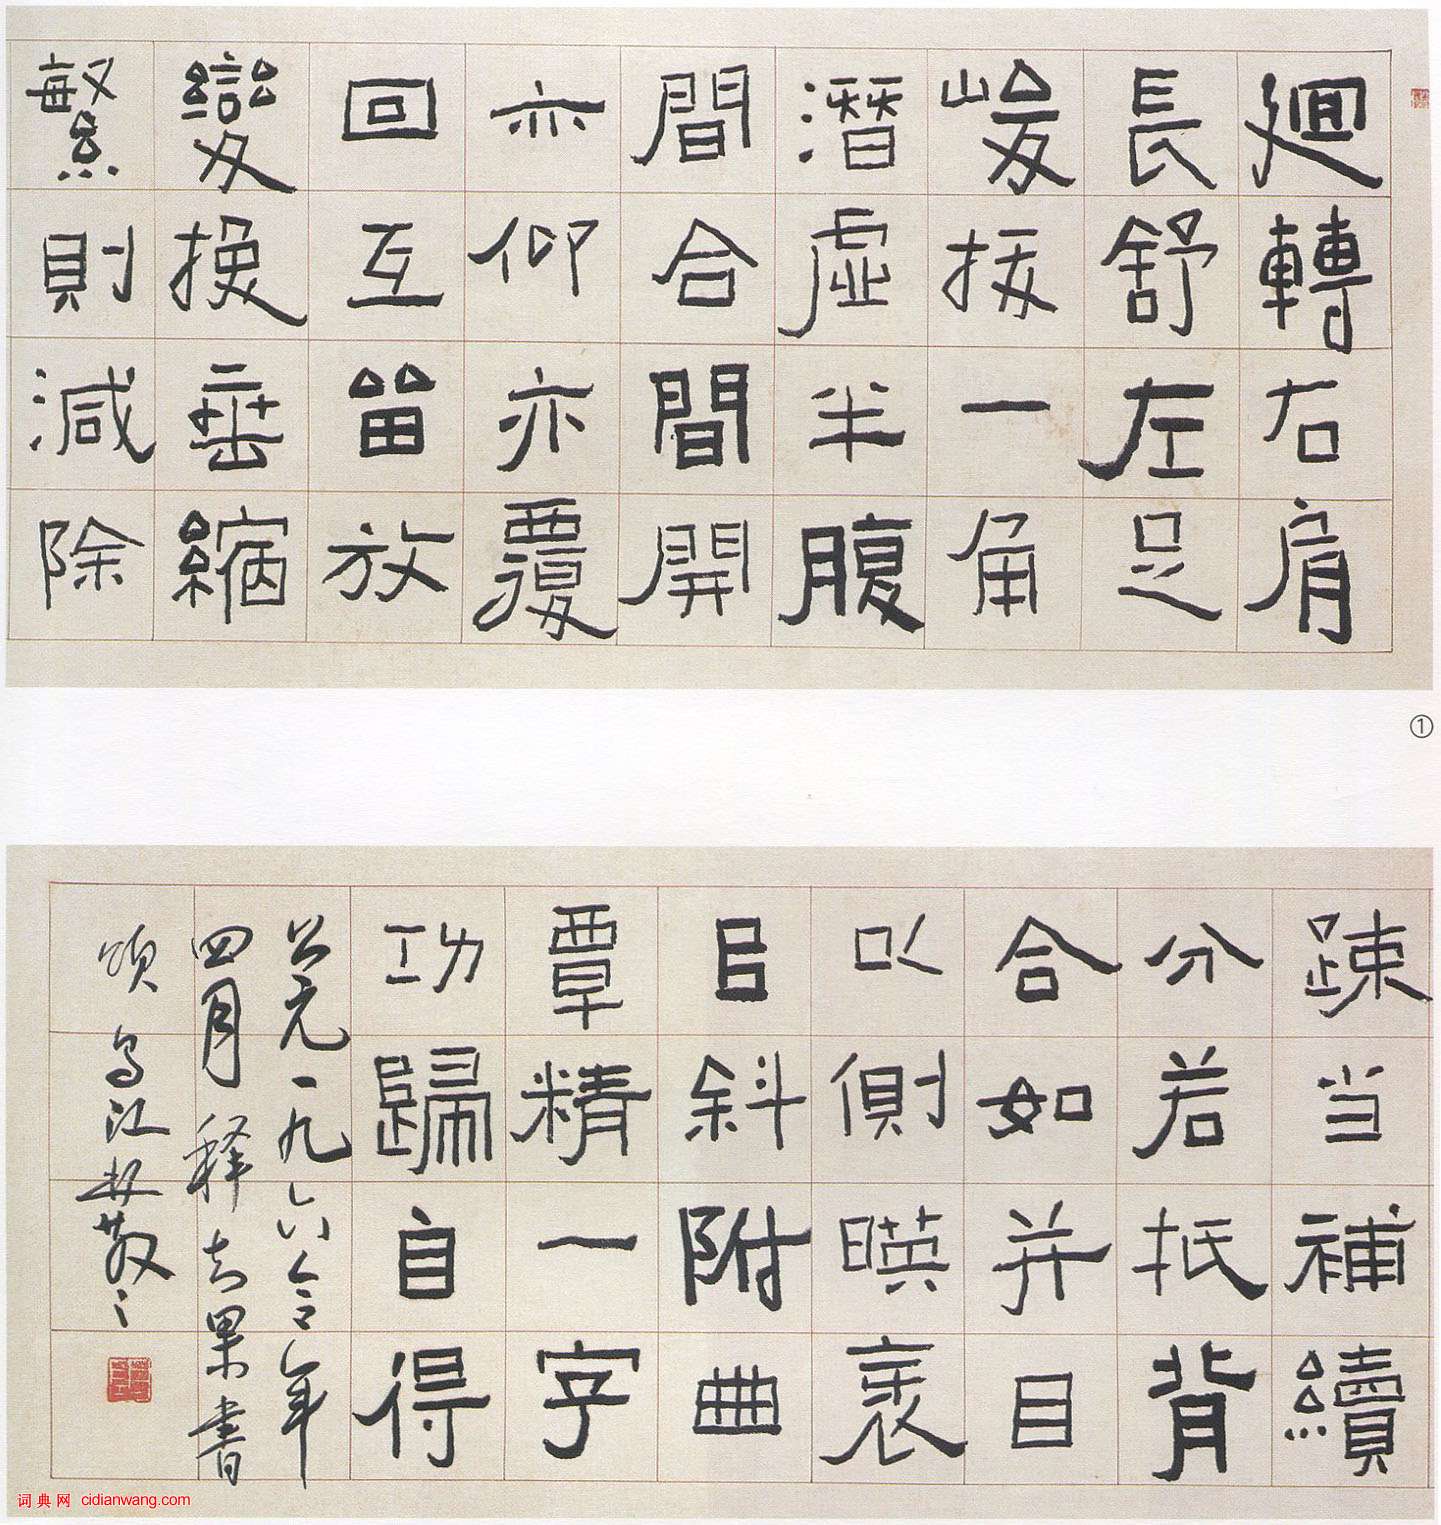 迴轉右肩
長舒左足
峻拔一角
潛虛半腹
間合間開
亦仰亦覆
回互留放
變換垂縮
繁則減除
①
疎当補續
分若抵背
合如并目
以側暎衺
㠯斜附曲
覃精一字
功歸自得
公元一九六令年
四月释知果書
頌 烏江林散之
词典网 cidianwang.com